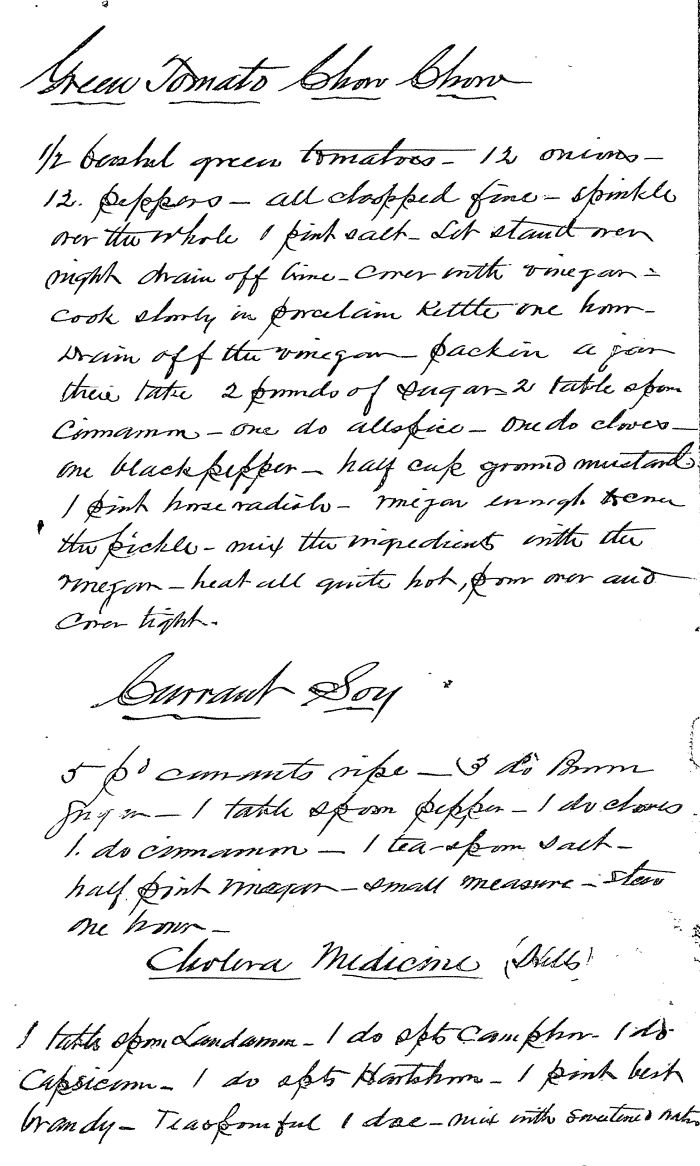 Green Tomato Chow Chow
1/2 bushel green tomatoes - 12 onions -
12. peppers - all chopped fine - sprinkle
over the whole 1 pint salt - Let stand over
night drain off brine - cover with vinegar -
cook slowly in porcelain Kettle one hour -
Drain off the vinegar - pack in a jar
then take 2 pounds of sugar - 2 table spoon
Cinnamon - one do allspice - one do cloves -
one black pepper - half cup ground mustard
1 pint horse radish - vinegar enough to cover
the pickle - mix the ingredients with the
vinegar - heat all quite hot, pour over and
cover tight.
Currant Soy
5 pds currants ripe - 3 do Brown
Sugar - 1 table spoon pepper - 1 do cloves
1. do cinnamon - 1 tea-spoon salt -
half pint vinegar - small measure - stew
one hour -
Cholera Medicine
1 table spoon Laudanum - 1 do spts Camphor - 1 do
Capsicum - 1 do spts Hartshorn - 1 pint best
brandy - Teaspoonful 1 dose - mix with sweetened water